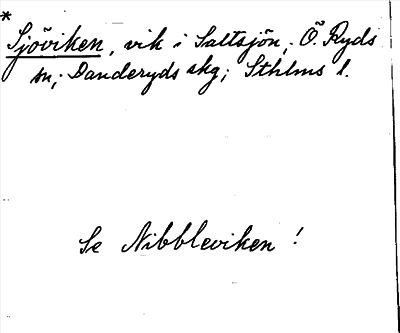 *
Sjöviken, vik i Saltsjön, Ö. Ryds
sn; Danderyds skg; Sthlms l.
Se Nibbleviken!